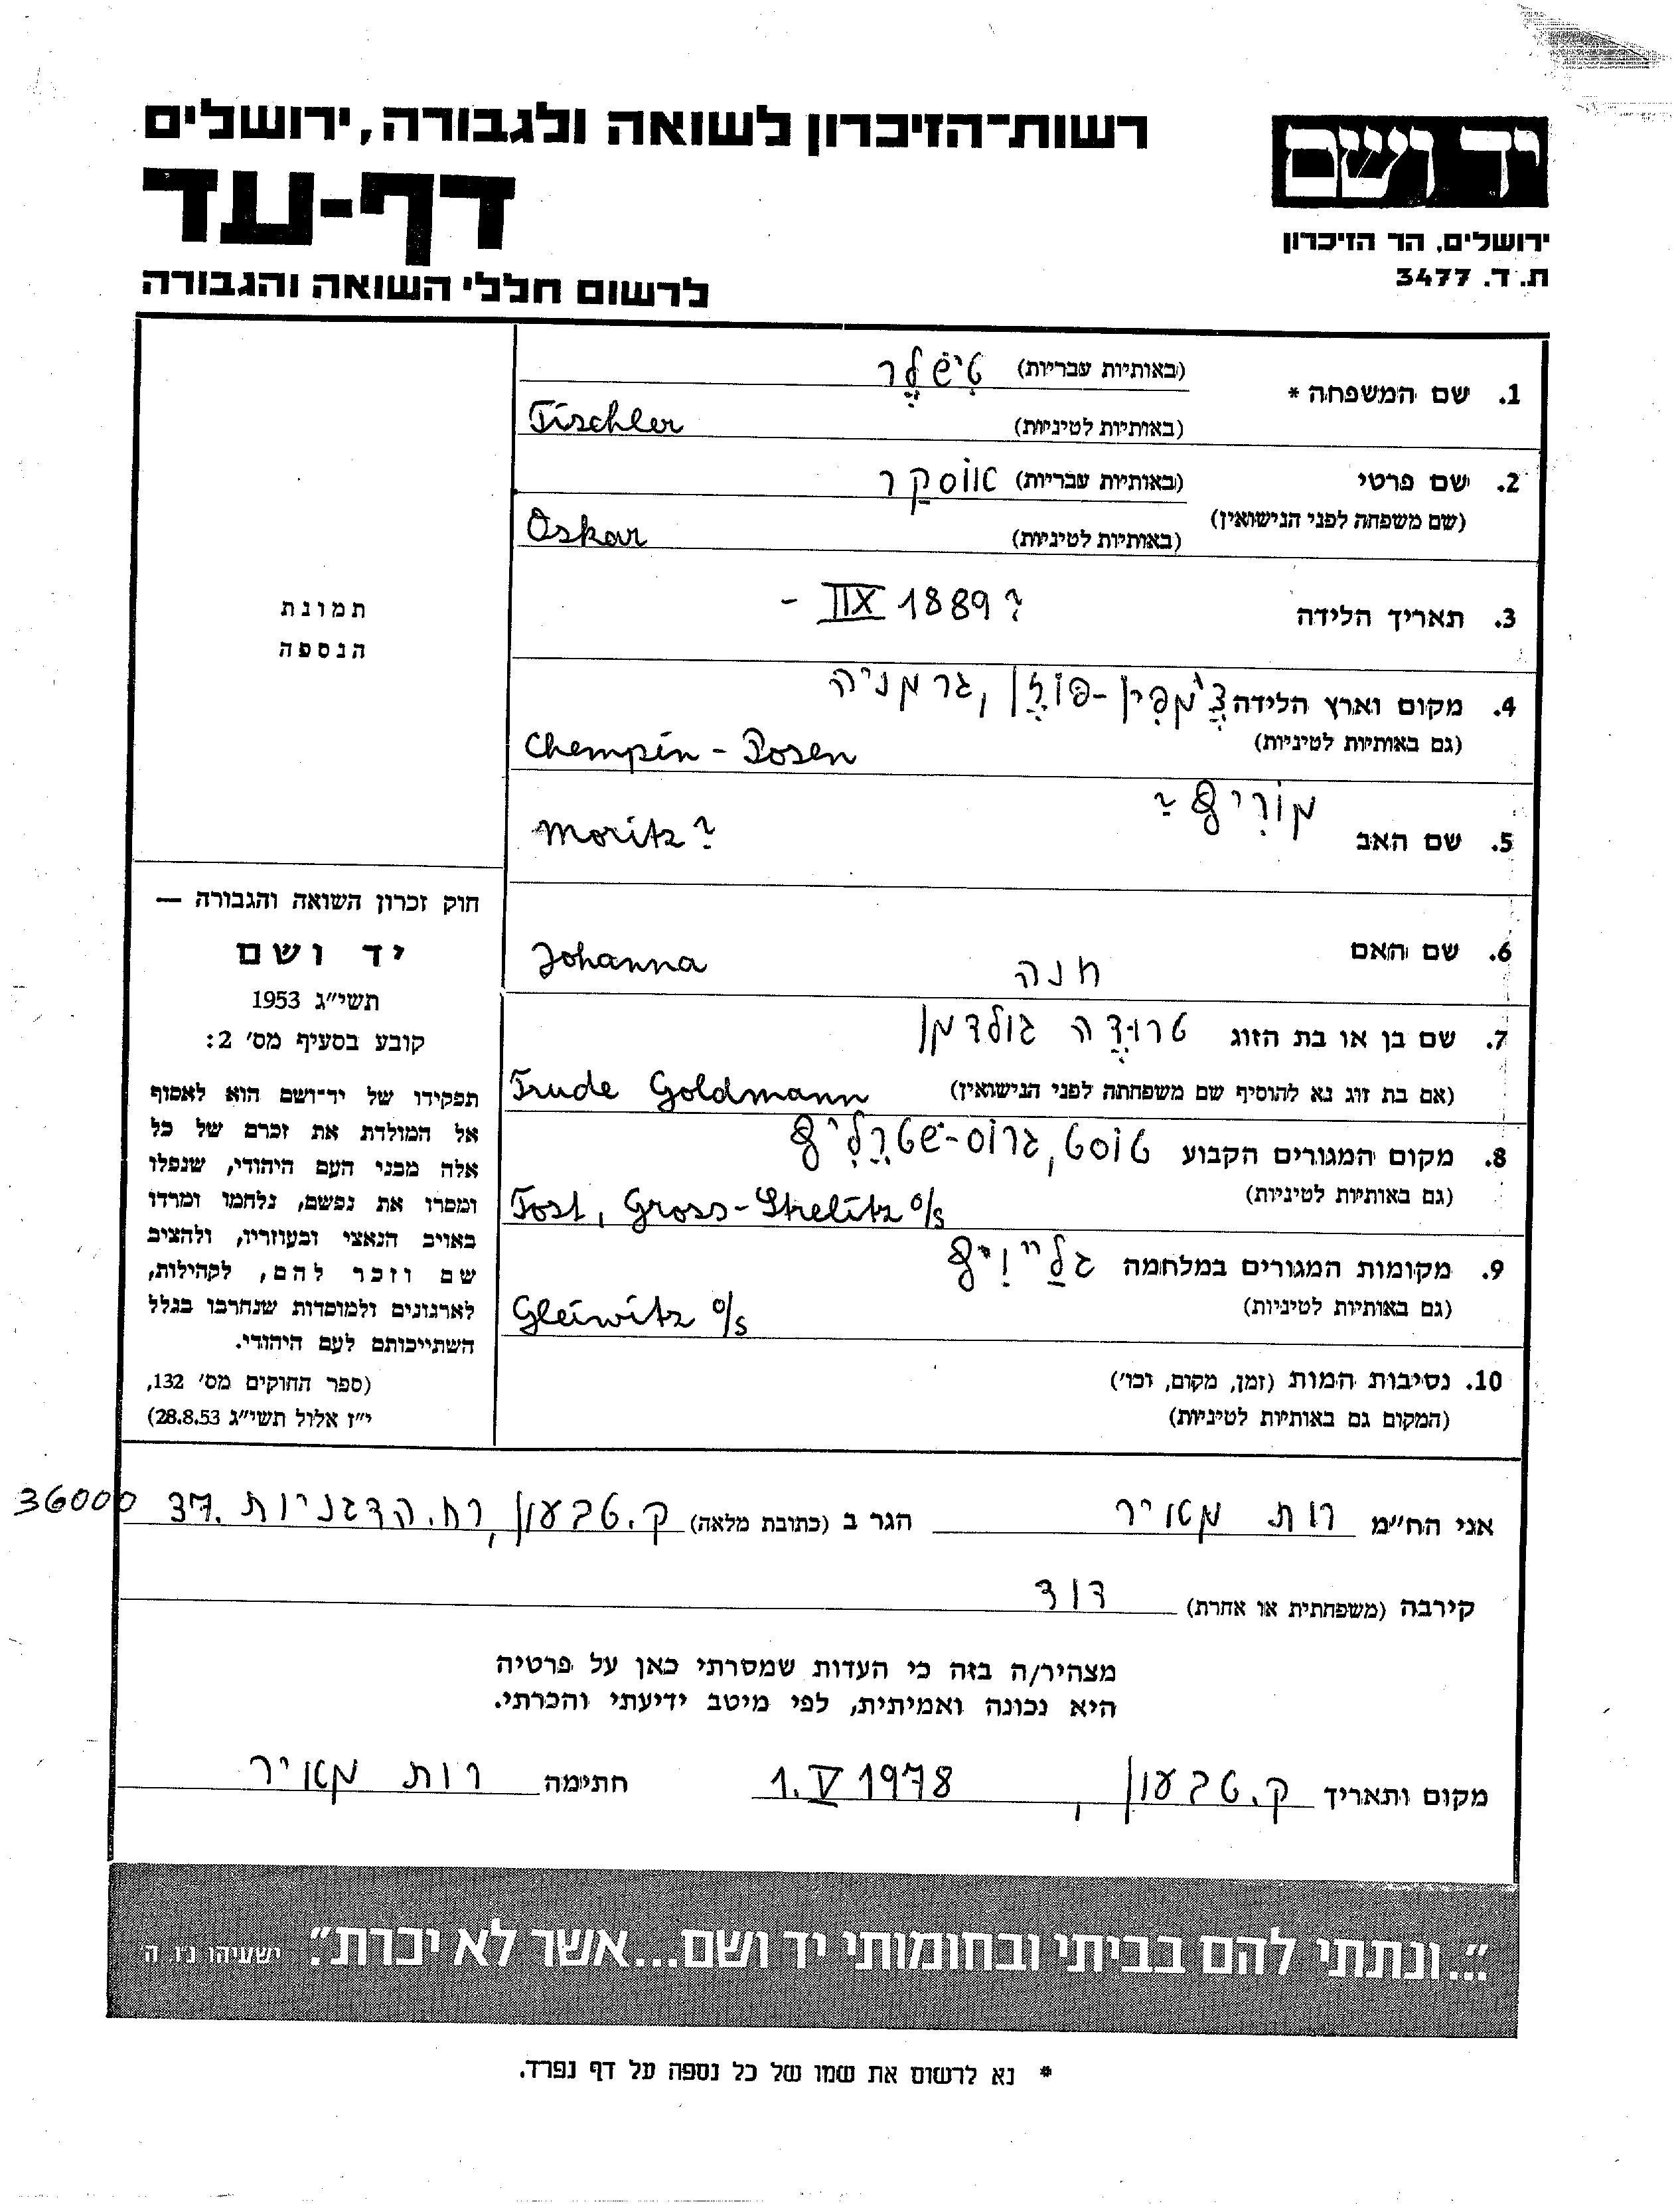 יד ושם
ירושלים, הר הזיכרון
ת.ד. 3477
רשות־הזיכרון לשואה ולגבורה, ירושלים
דף-עד
לרשום חללי השואה והגבורה
1. שם המשפחה *
(באותיות עבריות) טִישְׁלֶר
(באותיות לטיניות) Tischler
2. שם פרטי
(שם משפחה לפני הנישואין)
(באותיות עבריות) אוֹסקר
(באותיות לטיניות) Oskar
3. תאריך הלידה
- IIX 1889 ?
4. מקום וארץ הלידה צֶ'מפִּין-פּוֹזֶן, גרמניה
(גם באותיות לטיניות)
Chempin - Posen
5. שם האב מוֹרִיץ ?
Moritz ?
6. שם האם חנה
Johanna
7. שם בן או בת הזוג טרוּדֶה גולדמן
(אם בת זוג נא להוסיף שם משפחתה לפני הנישואין) Trude Goldmann
8. מקום המגורים הקבוע טוֹסט, גרוֹס-שטרֶלִיץ
(גם באותיות לטיניות)
Tost, Gross-Strelitz o/s
9. מקומות המגורים במלחמה גלַייוִיץ
(גם באותיות לטיניות)
Gleiwitz o/s
10. נסיבות המות (זמן, מקום, וכו')
(המקום גם באותיות לטיניות)
תמונת
הנספה
חוק זכרון השואה והגבורה —
יד ושם
תשי"ג 1953
קובע בסעיף מס' 2:
תפקידו של יד־ושם הוא לאסוף
אל המולדת את זכרם של כל
אלה מבני העם היהודי, שנפלו
ומסרו את נפשם, נלחמו ומרדו
באויב הנאצי ובעוזריו, ולהציב
שם וזכר להם, לקהילות,
לארגונים ולמוסדות שנחרבו בגלל
השתייכותם לעם היהודי.
(ספר החוקים מס' 132,
י"ז אלול תשי"ג 28.8.53)
אני הח"מ רות מאיר הגר ב (כתובת מלאה) ק. טבעון, רח. הדגניות 37. 36000
קירבה (משפחתית או אחרת) דוד
מצהיר/ה בזה כי העדות שמסרתי כאן על פרטיה
היא נכונה ואמיתית, לפי מיטב ידיעתי והכרתי.
מקום ותאריך ק. טבעון, 1. V 1978 חתימה רות מאיר
"...ונתתי להם בביתי ובחומותי יד ושם...אשר לא יכרת". ישעיהו נ"ו, ה'
* נא לרשום את שמו של כל נספה על דף נפרד.